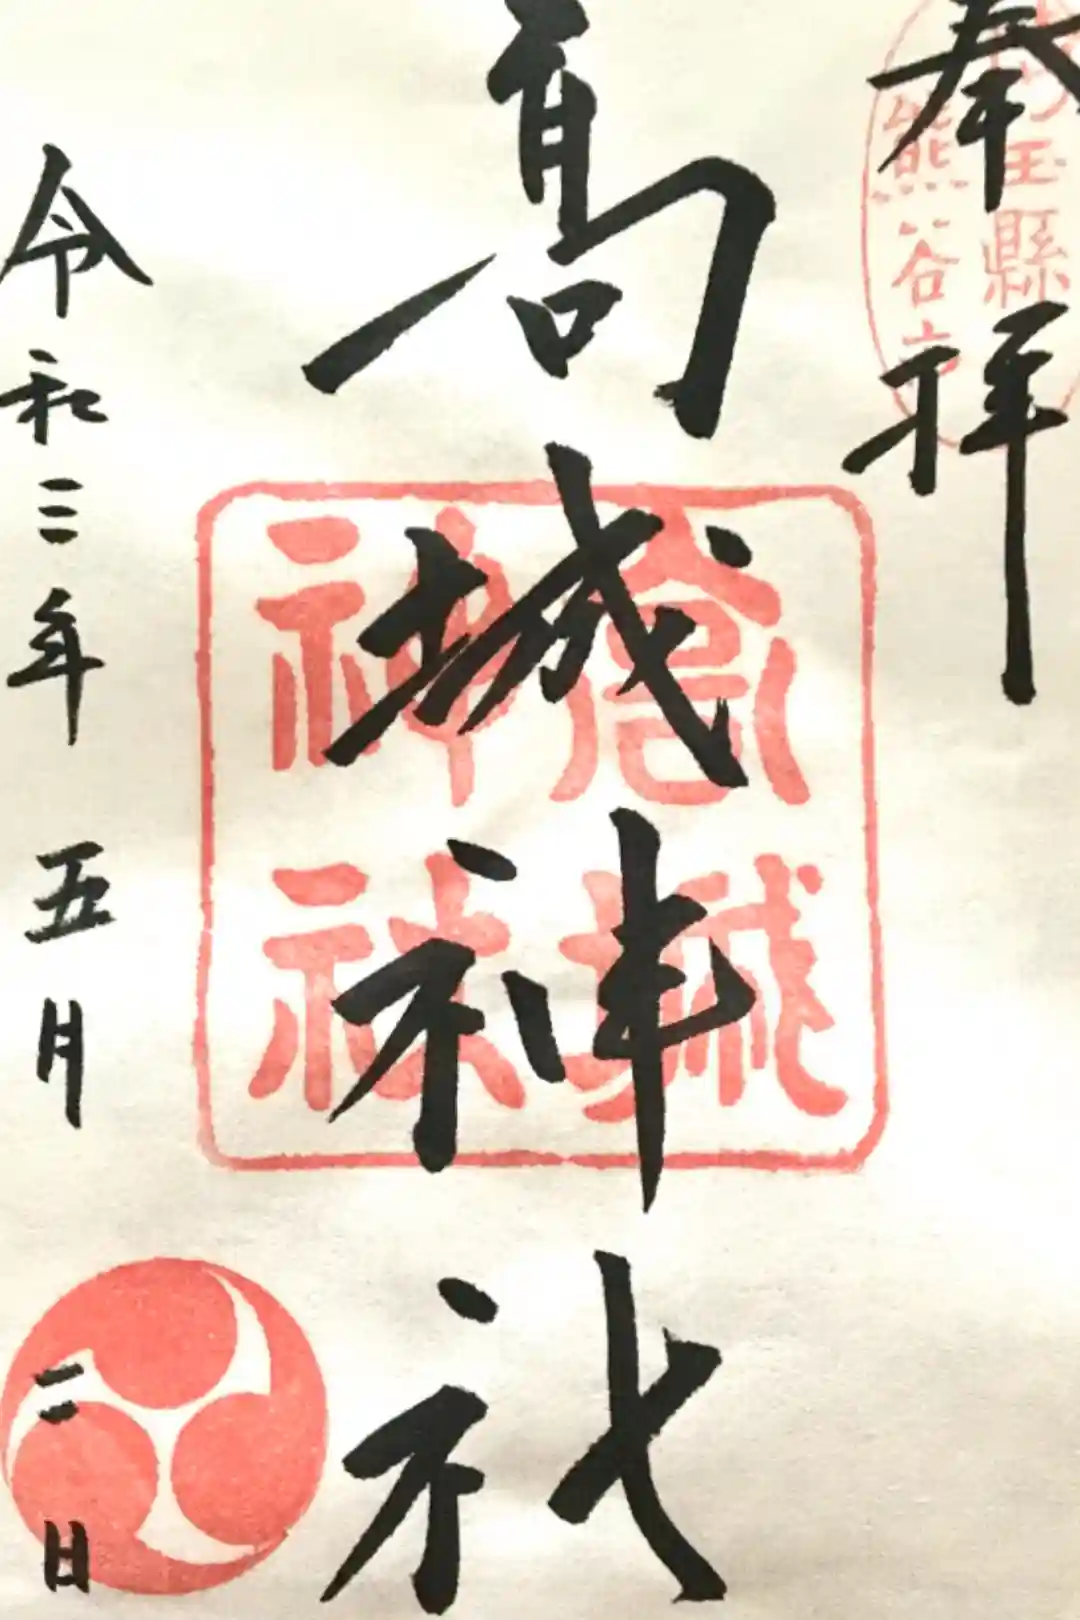 奉拝
埼玉縣
熊谷市
高城神社
高城
神社
令和二年五月二日